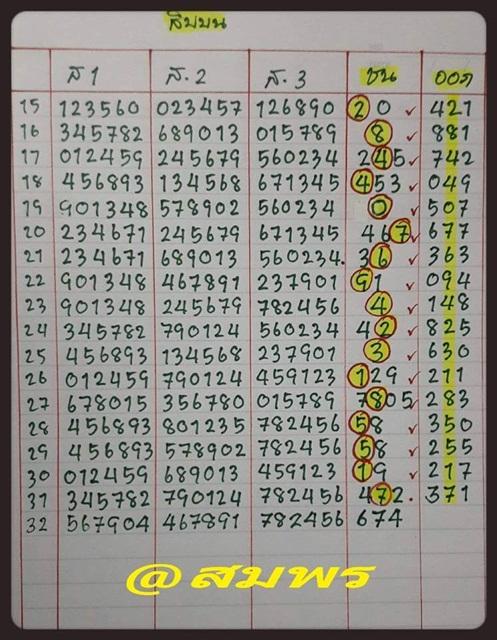 สิบบน
ส1 ส.2 ส.3 ชน ออก
15 123560 023457 126890 20 ✓ 421
16 345782 689013 015789 8 ✓ 881
17 012459 245679 560234 245 ✓ 742
18 456893 134568 671345 453 ✓ 049
19 901348 578902 560234 0 ✓ 507
20 234671 245679 671345 467 ✓ 677
21 234671 689013 560234. 36 ✓ 363
22 901348 467891 237901 91 ✓ 094
23 901348 245679 782456 4 ✓ 148
24 345782 790124 560234 42 ✓ 825
25 456893 134568 237901 3 ✓ 630
26 012459 790124 459123 129 ✓ 211
27 678015 356780 015789 7805 ✓ 283
28 456893 801235 782456 58 ✓ 350
29 456893 578902 782456 58 ✓ 255
30 012459 689013 459123 19 ✓ 217
31 345782 790124 782456 472. 371
32 567904 467891 782456 674
@สมพร